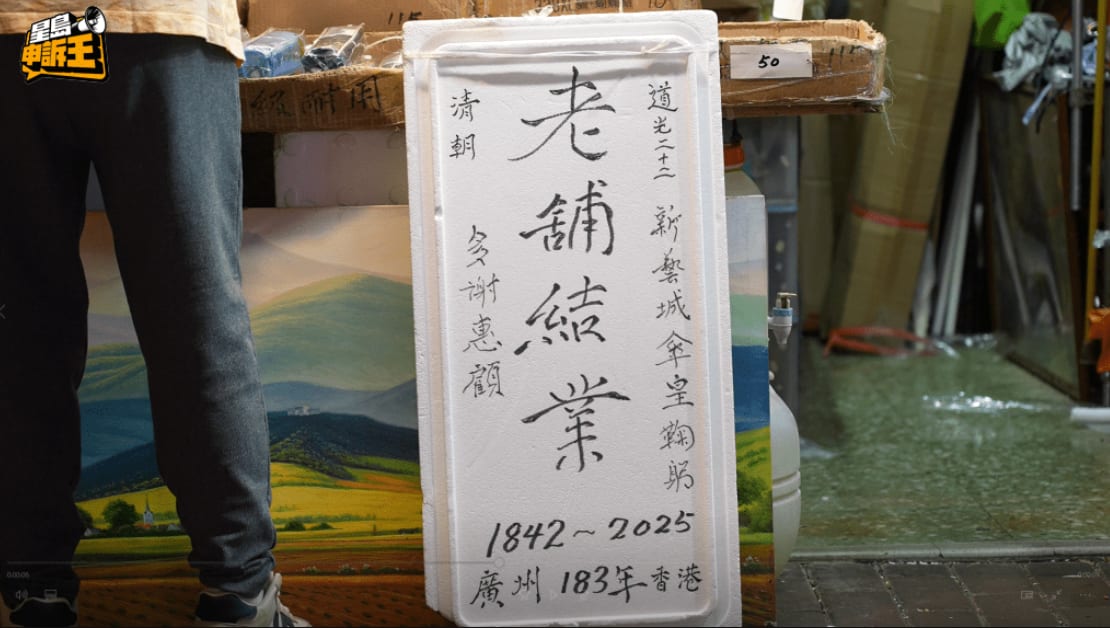 星島
申訴王
115
50
級耐用
道光二十二 新藝城傘皇鞠躬
老舖結業
清朝 多謝惠顧
1842~2025
廣州 183年香港
0:00:05